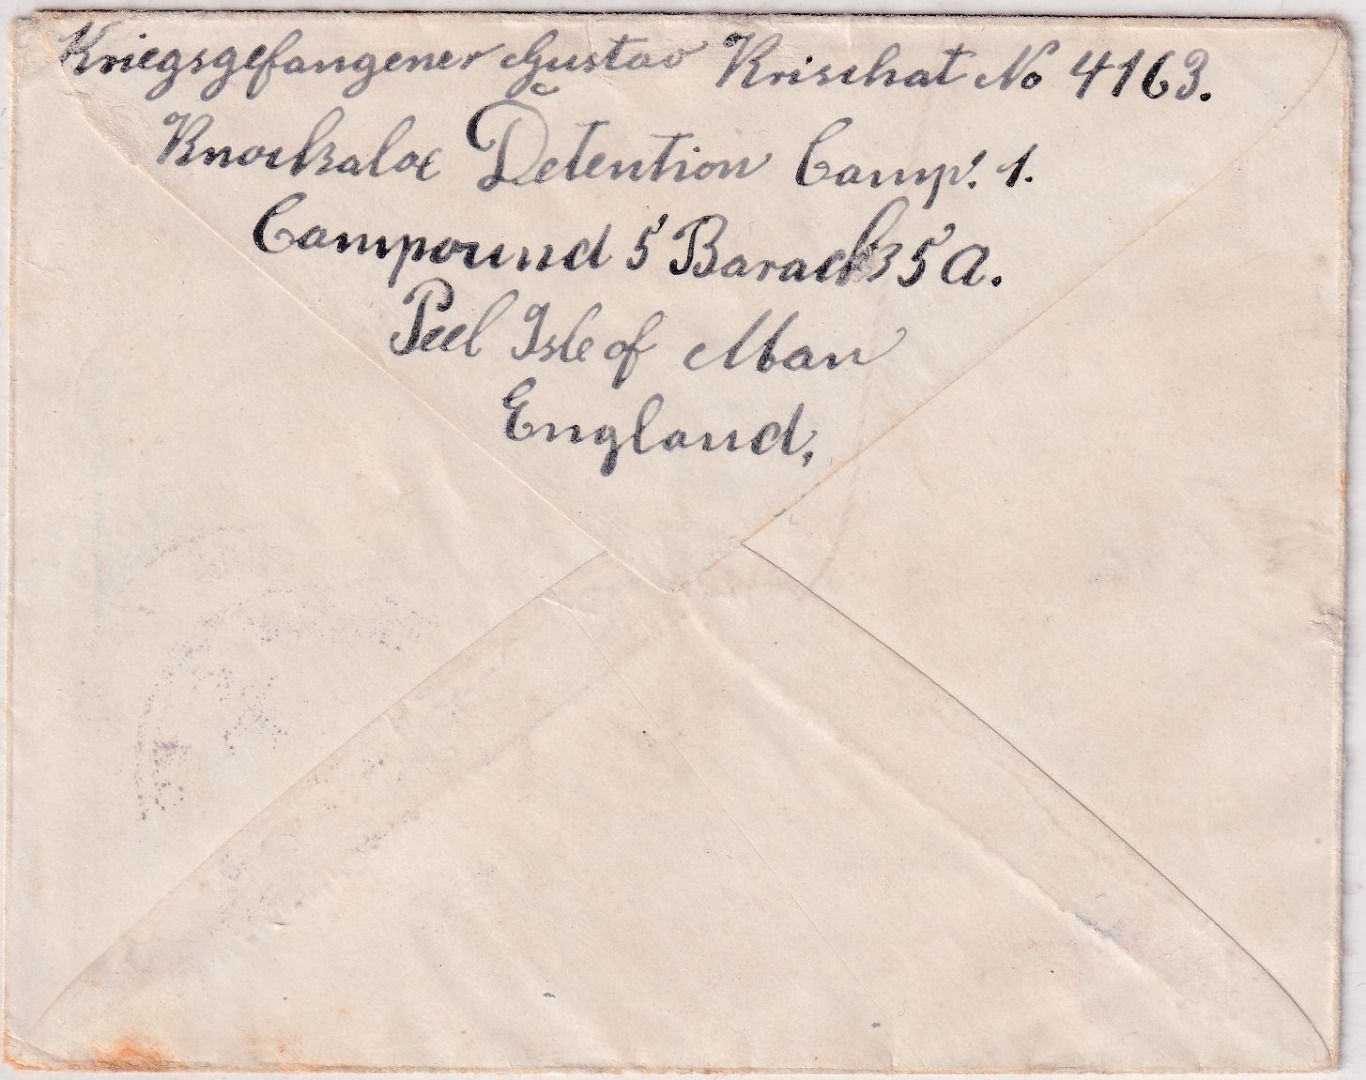 Kriegsgefangener Gustav Krischat No 4163.
Knockaloe Detention Camp. 1.
Campound 5 Barack 5 A.
Peel Isle of Man
England,